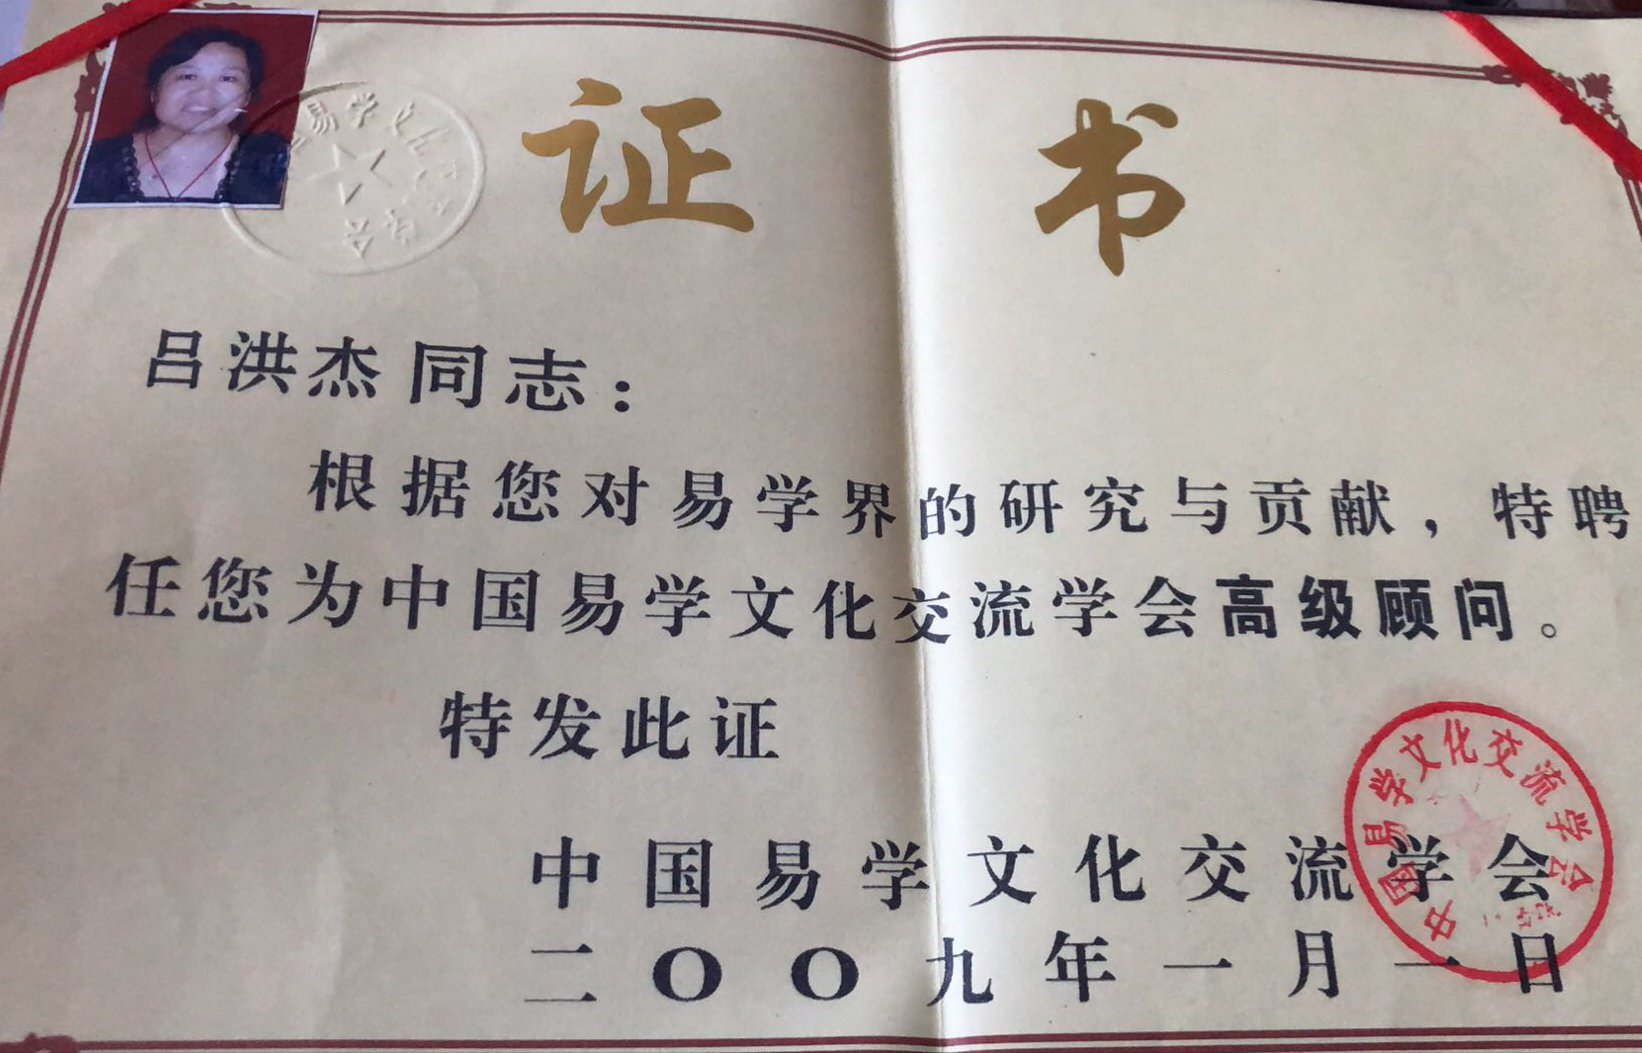 证书
吕洪杰同志：
根据您对易学界的研究与贡献，特聘
任您为中国易学文化交流学会高级顾问。
特发此证
中国易学文化交流学会
二〇〇九年一月一日
中国易学文化交流学会
易学文化